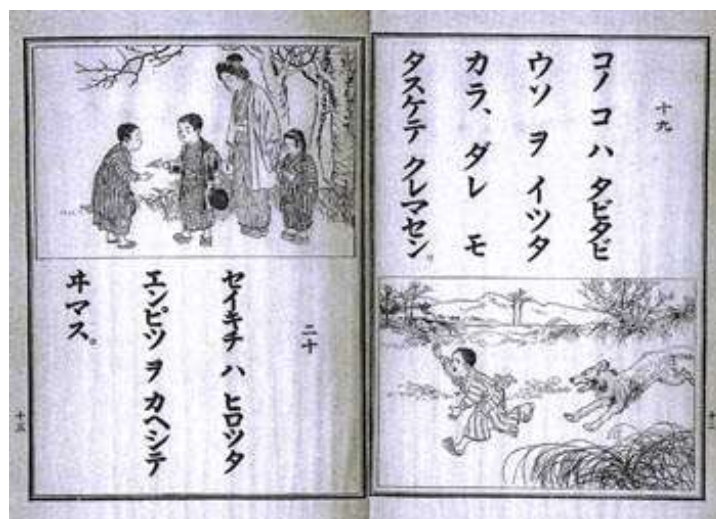 十九
コノ コ ハ タビタビ
ウソ ヲ イツタ
カラ、ダレ モ
タスケテ クレマセン。
十二
二十
セイキチ ハ ヒロツタ
エンピツ ヲ カヘシテ
ヰマス。
十三